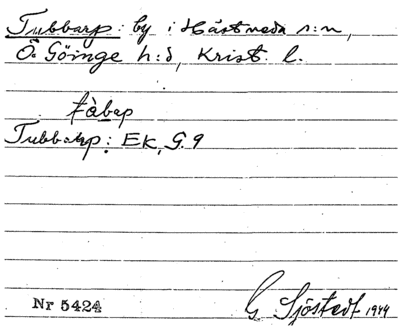 Tubbarp: by i Hästveda s:n,
Ö. Göinge h:d, Krist. l.
tàbap
Tubbarp: EK, G. 9
Nr 5424
G Sjöstedt 1944